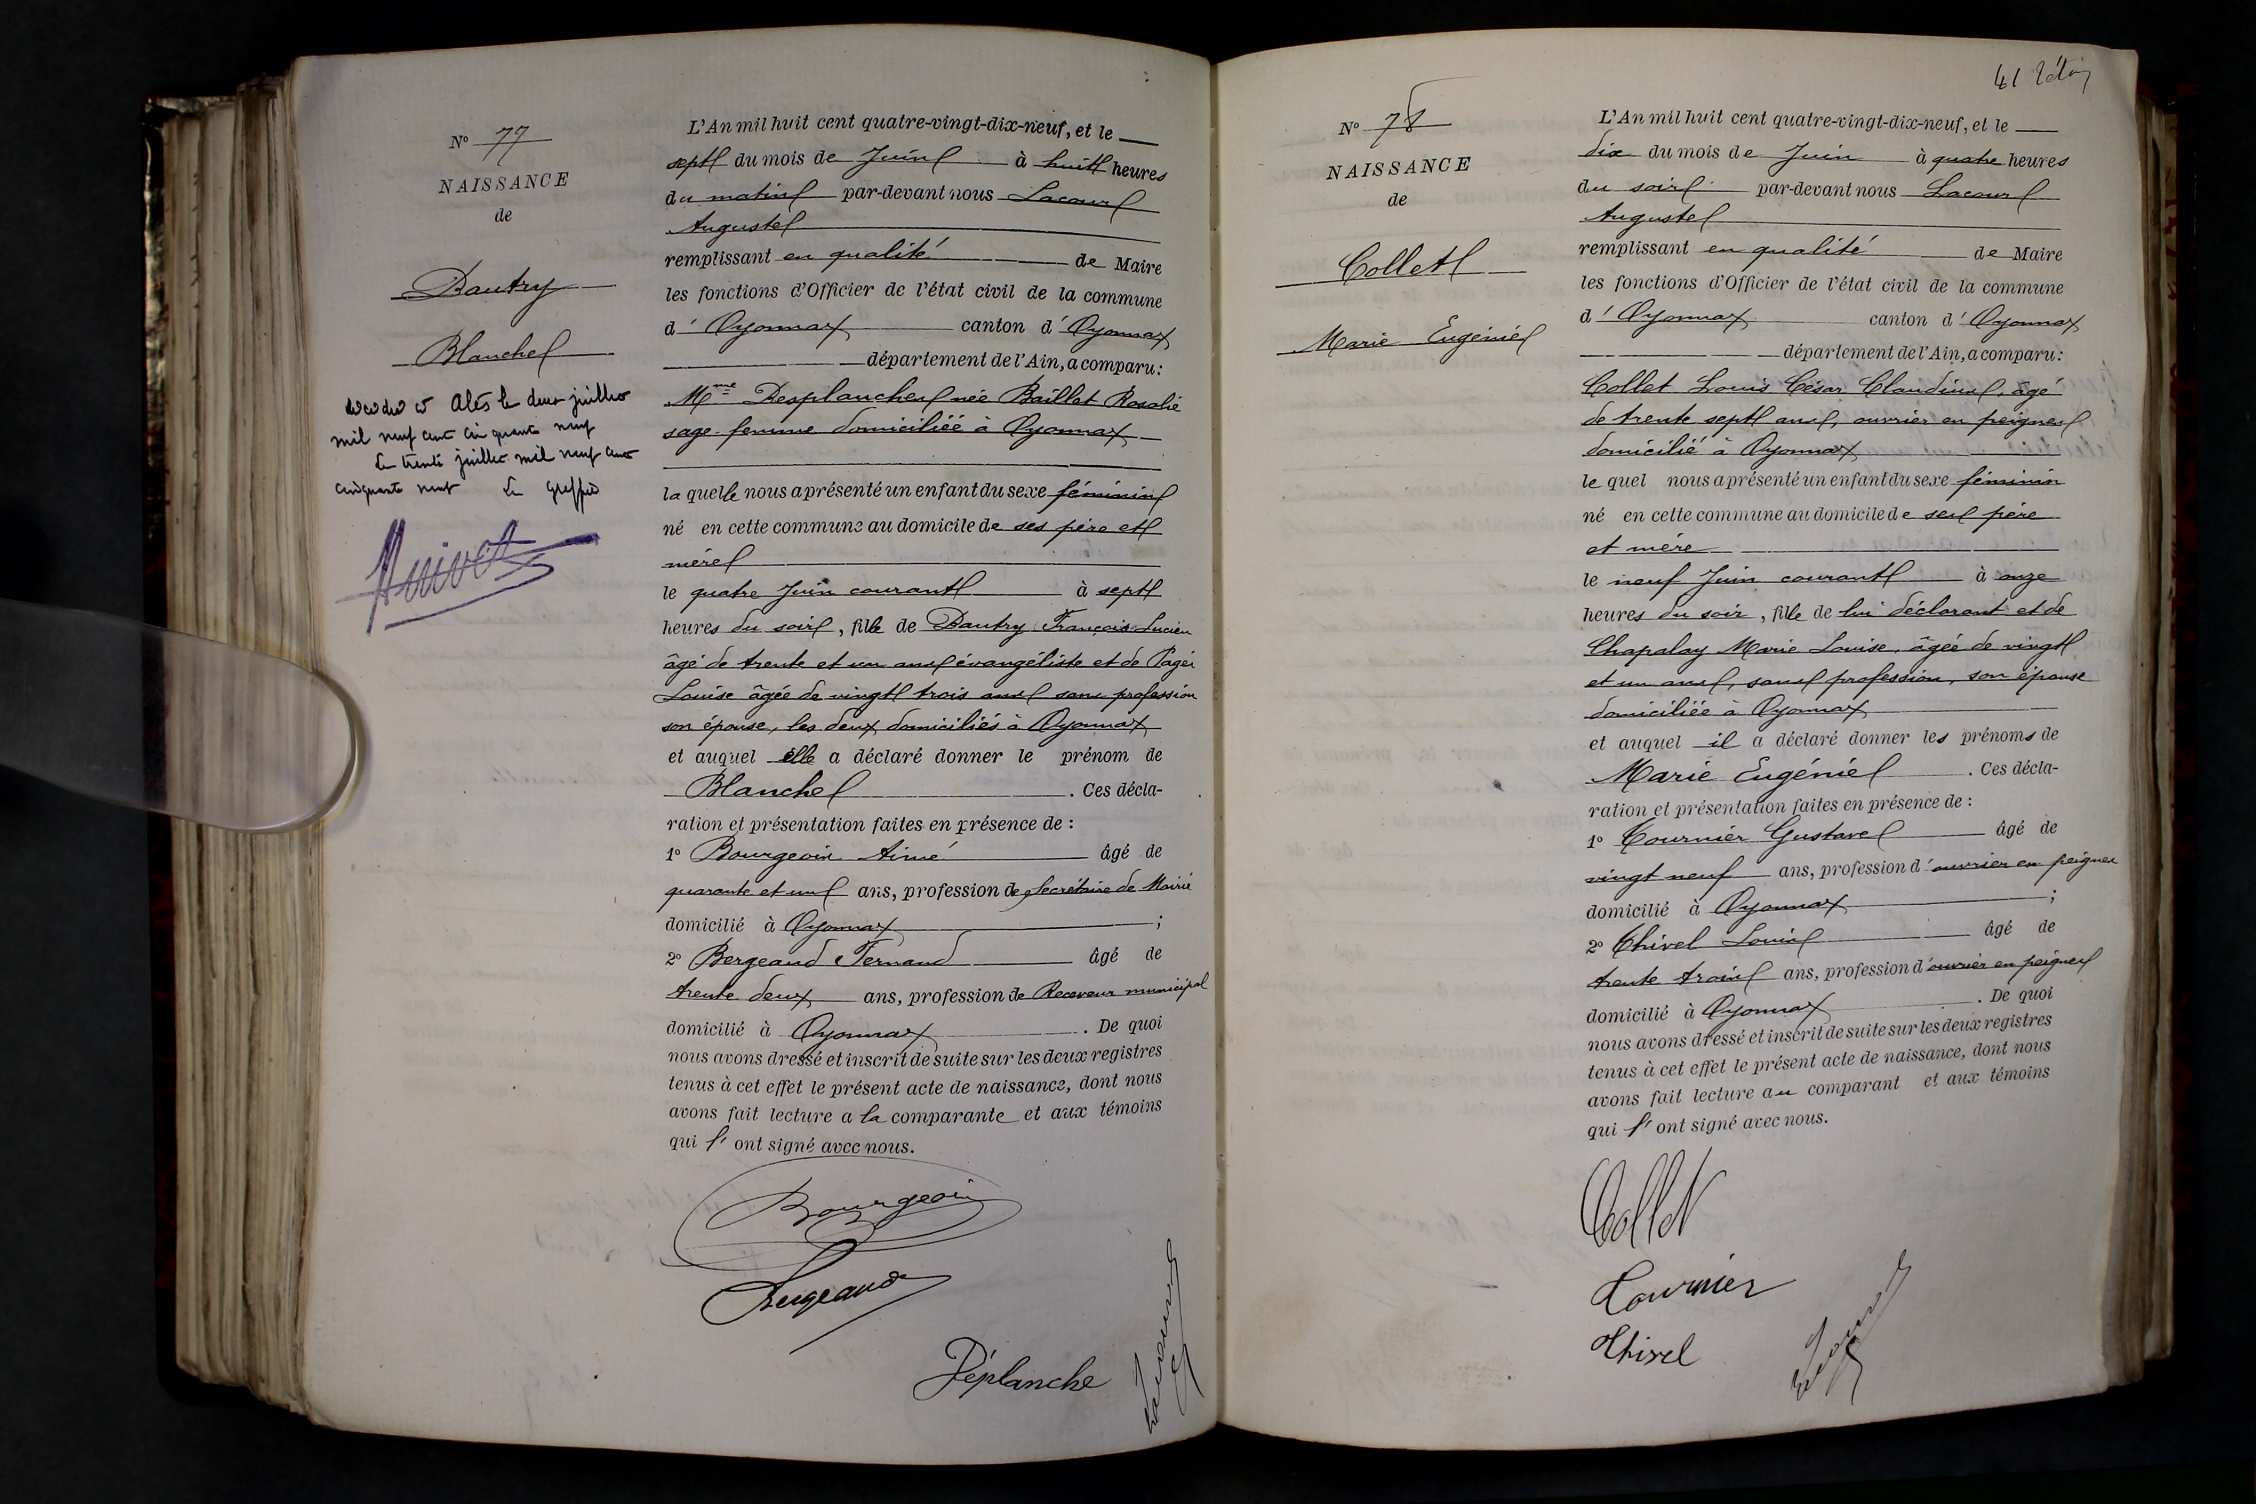 N° 77
NAISSANCE
de
Dautry
Blanche
décédée à Alès le deux juillet
mil neuf cent cinquante neuf
Le trente juillet mil neuf cent
cinquante neuf Le Greffier
L'An mil huit cent quatre-vingt-dix-neuf, et le
sept du mois de Juin à huit heures
du matin par-devant nous Lacour
Auguste
remplissant en qualité de Maire
les fonctions d'Officier de l'état civil de la commune
d' Oyonnax canton d' Oyonnax
département de l'Ain, a comparu:
Mme Desplanches née Baillet Rosalie
sage-femme domiciliée à Oyonnax
la quelle nous a présenté un enfant du sexe féminin
né en cette commune au domicile de ses père et
mère
le quatre Juin courant à sept
heures du soir, fille de Dautry François Lucien
âgé de trente et un ans évangéliste et de Pagès
Louise âgée de vingt trois ans sans profession
son épouse, les deux domiciliés à Oyonnax
et auquel elle a déclaré donner le prénom de
Blanche. Ces décla-
ration et présentation faites en présence de :
1° Bourgeois Aimé âgé de
quarante et un ans, profession de Secrétaire de Mairie
domicilié à Oyonnax ;
2° Bergeaud Fernand âgé de
trente deux ans, profession de Receveur municipal
domicilié à Oyonnax. De quoi
nous avons dressé et inscrit de suite sur les deux registres
tenus à cet effet le présent acte de naissance, dont nous
avons fait lecture a la comparante et aux témoins
qui l' ont signé avec nous.
Bourgeois
Bergeaud
Déplanche
Lacour
41
N° 78
NAISSANCE
de
Collet
Marie Eugénie
L'An mil huit cent quatre-vingt-dix-neuf, et le
dix du mois de Juin à quatre heures
du soir par-devant nous Lacour
Auguste
remplissant en qualité de Maire
les fonctions d'Officier de l'état civil de la commune
d' Oyonnax canton d' Oyonnax
département de l'Ain, a comparu:
Collet Louis César Claudius, âgé
de trente sept ans, ouvrier en peignes
domicilié à Oyonnax
le quel nous a présenté un enfant du sexe féminin
né en cette commune au domicile de ses père
et mère
le neuf Juin courant à onze
heures du soir, fille de lui déclarant et de
Chapalay Marie Louise, âgée de vingt
et un ans, sans profession, son épouse
domiciliée à Oyonnax
et auquel il a déclaré donner les prénoms de
Marie Eugénie. Ces décla-
ration et présentation faites en présence de :
1° Tournier Gustave âgé de
vingt neuf ans, profession d'ouvrier en peignes
domicilié à Oyonnax ;
2° Thivel Louis âgé de
trente trois ans, profession d'ouvrier en peignes
domicilié à Oyonnax. De quoi
nous avons dressé et inscrit de suite sur les deux registres
tenus à cet effet le présent acte de naissance, dont nous
avons fait lecture au comparant et aux témoins
qui l' ont signé avec nous.
Collet
Tournier
Thivel
Lacour